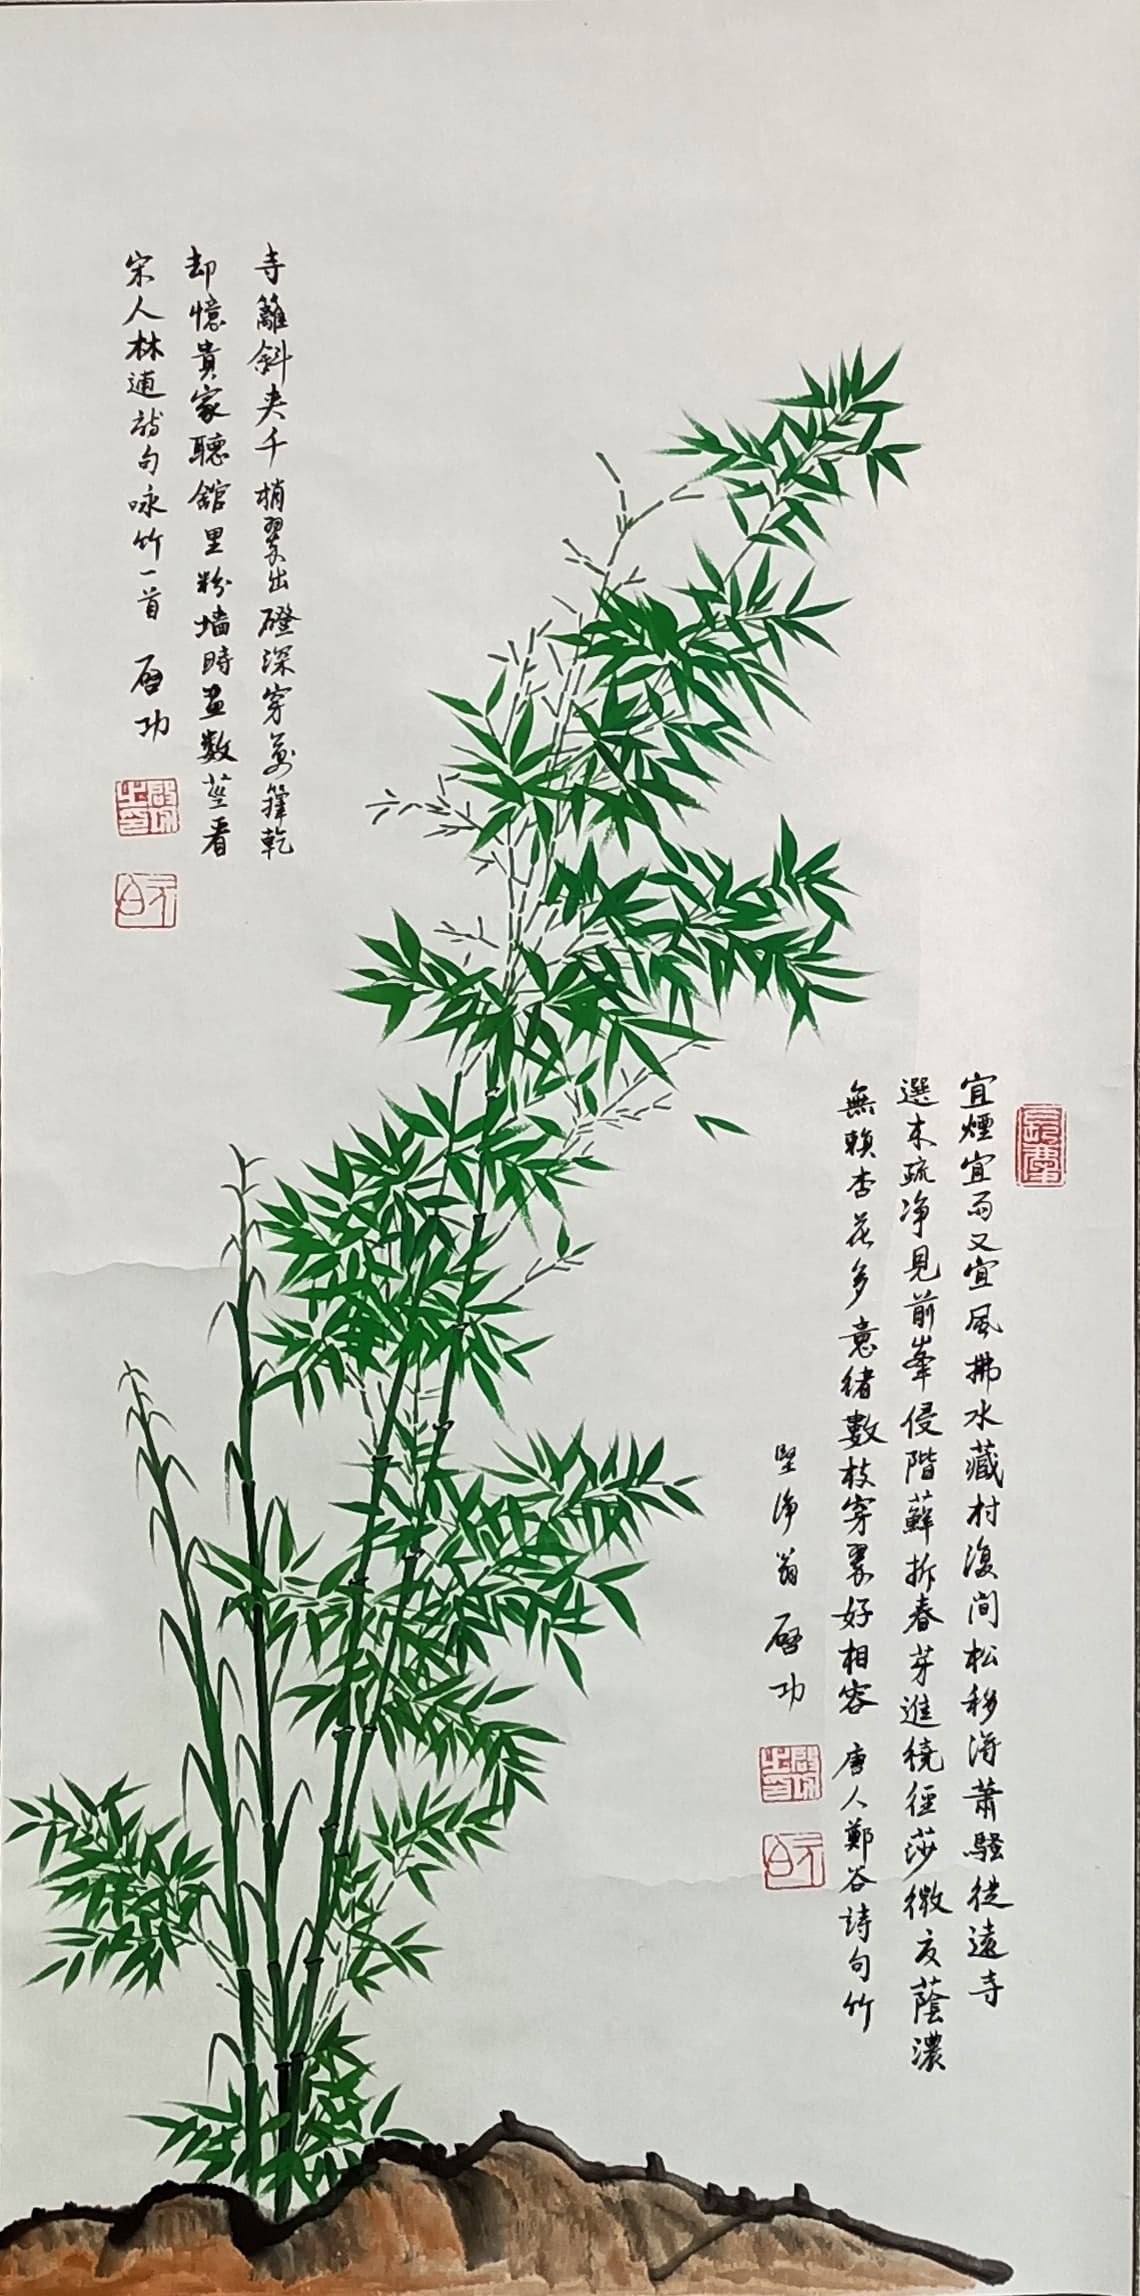 宜煙宜雨又宜風拂水藏村復間松移得蕭騷從遠寺
選來疏净見前峯侵階蘚拆春芽進繞徑莎微夏蔭濃
無賴杏花多意緒數枝穿翠好相容 唐人鄭谷詩句竹
堅净翁 啓功
啟功之印
元白
寺籬斜夹千梢翠出磴深穿萬籜乾
却憶貴家聽舘里粉墙時畫數莖看
宋人林逋詩句咏竹一首 啓功
啟功之印
元白